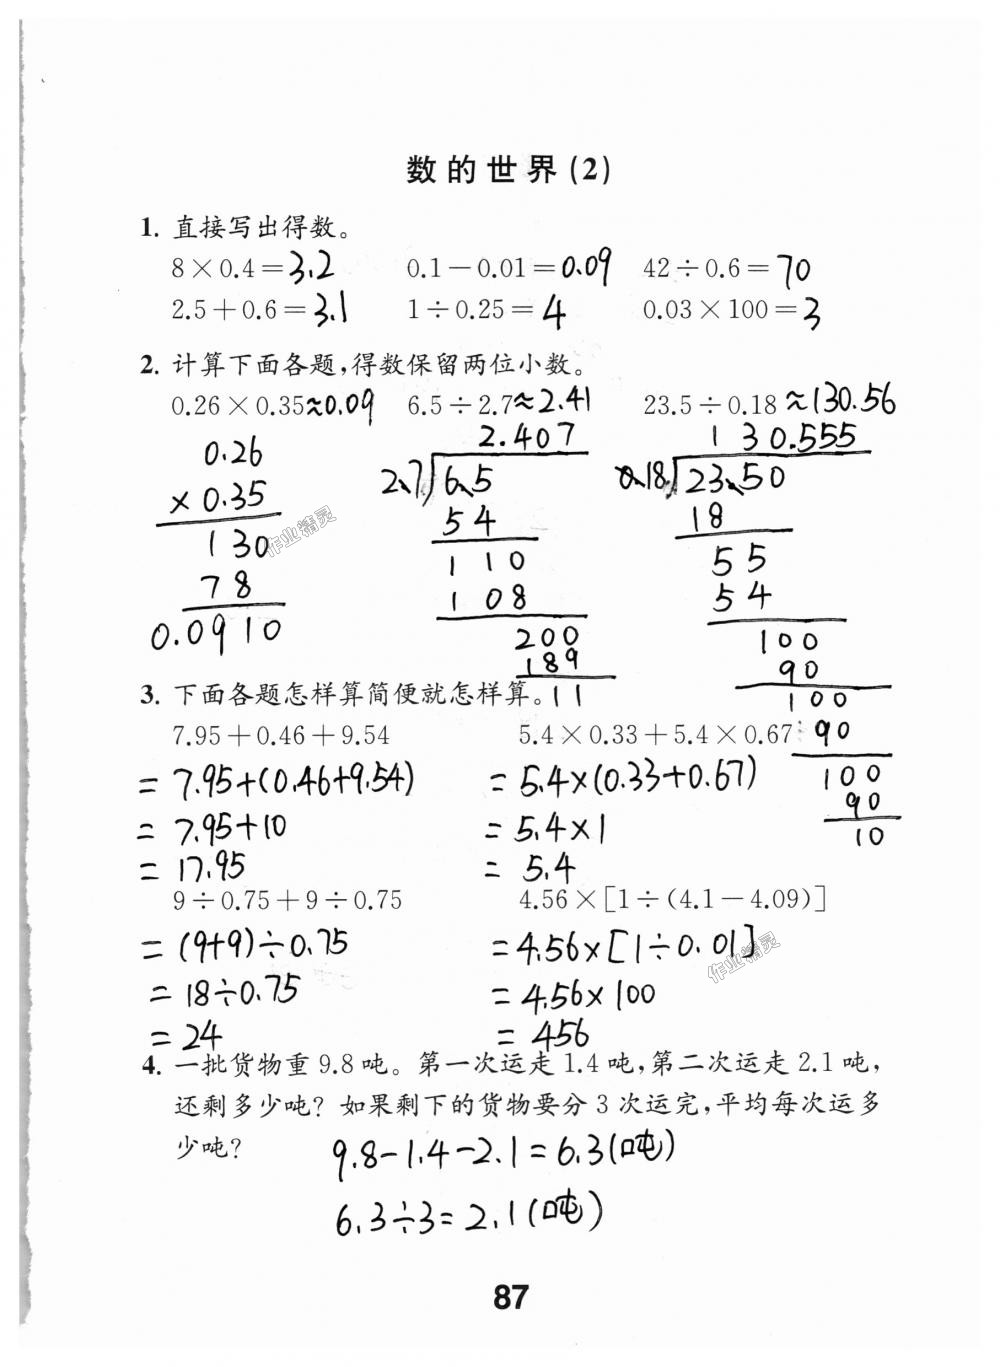 数的世界(2)
1. 直接写出得数。
8×0.4=3.2 0.1-0.01=0.09 42÷0.6=70
2.5+0.6=3.1 1÷0.25=4 0.03×100=3
2. 计算下面各题,得数保留两位小数。
0.26×0.35≈0.09 6.5÷2.7≈2.41 23.5÷0.18≈130.56
0.26
×0.35
130
78
0.0910
2.407
2.7)6.5
54
110
108
200
189
11
130.555
0.18)23.50
18
55
54
100
90
100
90
100
90
10
作业精灵
3. 下面各题怎样算简便就怎样算。
7.95+0.46+9.54 5.4×0.33+5.4×0.67
=7.95+(0.46+9.54) =5.4×(0.33+0.67)
=7.95+10 =5.4×1
=17.95 =5.4
9÷0.75+9÷0.75 4.56×[1÷(4.1-4.09)]
=(9+9)÷0.75 =4.56×[1÷0.01]
作业精灵
=18÷0.75 =4.56×100
=24 =456
4. 一批货物重9.8吨。第一次运走1.4吨,第二次运走2.1吨,
还剩多少吨?如果剩下的货物要分3次运完,平均每次运多
少吨?
9.8-1.4-2.1=6.3(吨)
6.3÷3=2.1(吨)
87